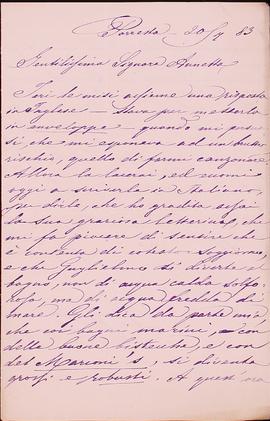 Porretta 20/7 83
Gentilissima Signora Annetta
Ieri le misi assieme una risposta
in Inglese — stava per metterla
in enveloppe — quando mi
si, che mi esponeva ad un brutto
rischio, quello di farmi canzonare
Allora la lacerai, ed eccomi
oggi a scriverla in Italiano,
per dirle, che ho gradita assai
la sua graziosa letterina, che
mi fa piacere di sentire che
è contenta di cotesto soggiorno
e che Guglielmo si diverte al
bagno, non di acqua calda solfo-
rosa, ma di acqua fredda di
mare. Gli dica da parte mia
che coi bagni marini — con
delle buone bistecche e con
del Marconi's, si diventa
grossi e robusti. A quest'ora